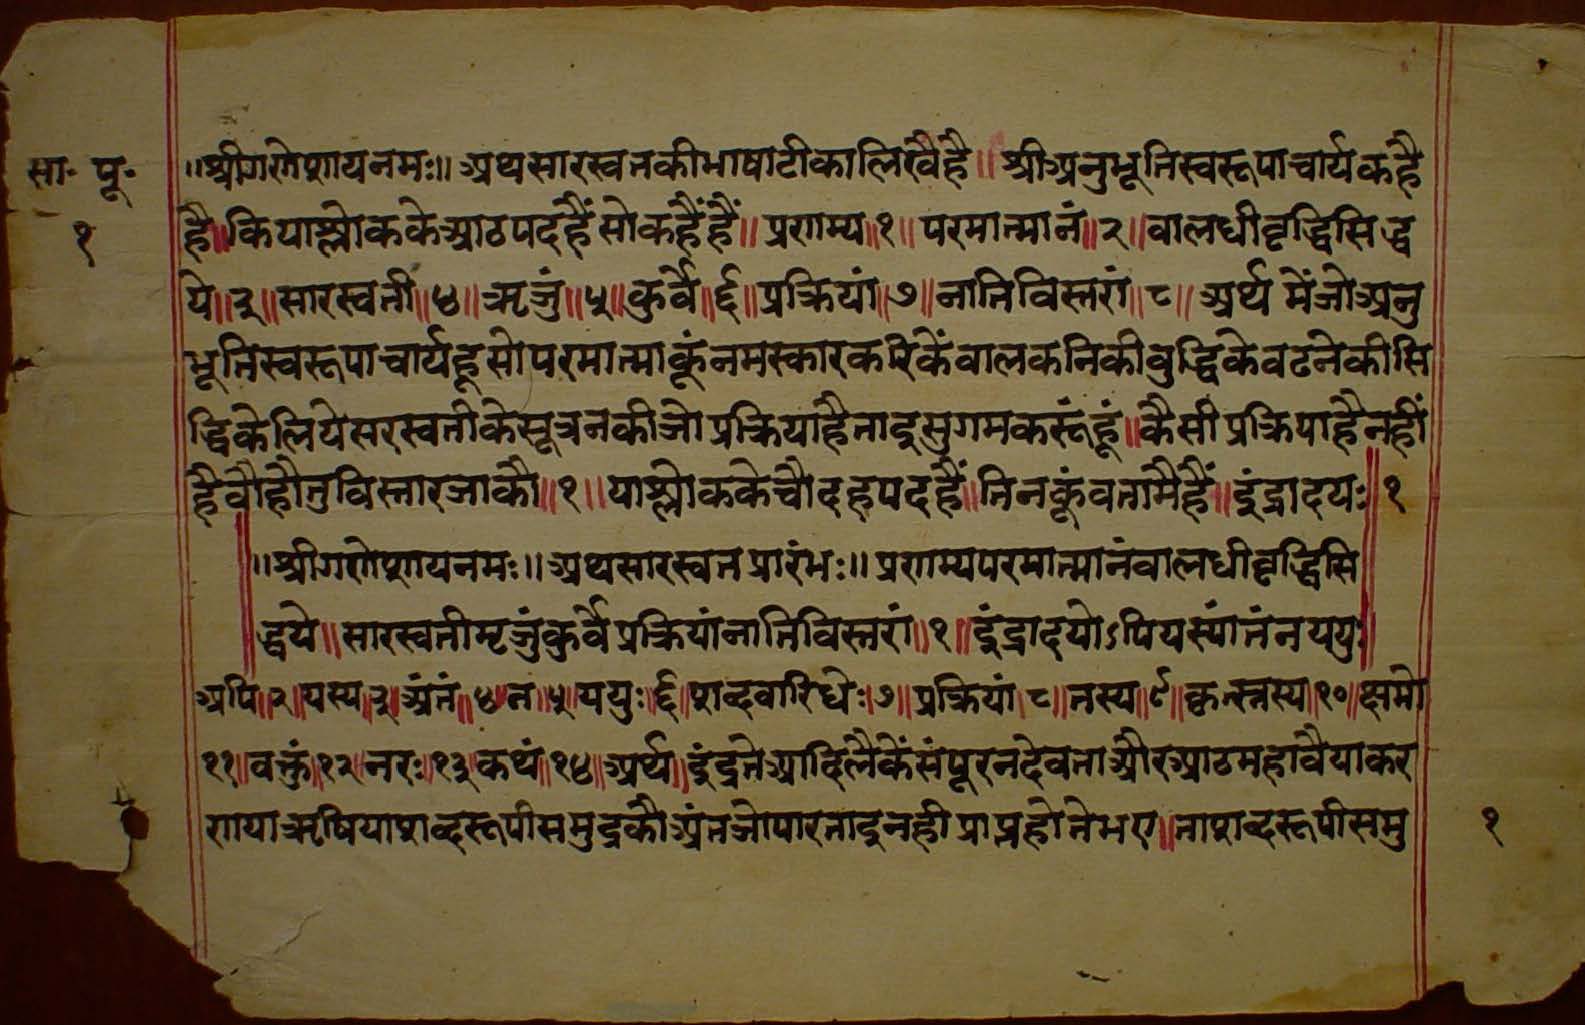 सा॰ पू॰
१
॥श्रीगणेशायनमः॥ अथसारस्वतकीभाषाटीकालिखैहै॥ श्रीअनुभूतिस्वरूपाचार्यकहै
है॥कियाश्लोककेआठपदहैंसोकहैंहैं॥ प्रणम्य॥१॥ परमात्मानं॥२॥वालधीवृद्धिसिद्ध
ये॥३॥सारस्वती॥४॥ऋजुं॥५॥कुर्वे॥६॥प्रक्रियां॥७॥नातिविस्तरां॥८॥ अर्थ मेंजोअनु
भूतिस्वरूपाचार्यहूसोपरमात्माकूंनमस्कारकरिकेंवालकनिकीवुद्धिकेवढनेकीसि
द्धिकेलियेसरस्वतीकेसूत्रनकीजोप्रक्रियाहैताइसुगमकरूंहूं॥कैसीप्रक्रियाहैनहीं
हैवौहौतुविस्तारजाकौ॥१॥ याश्लोककेचौदहपदहैं॥तिनकूंवतामैहैं॥इंद्रादयः॥१
॥श्रीगणेशायनमः॥अथसारस्वतप्रारंभः॥प्रणम्यपरमात्मानंवालधीवृद्धिसि
द्धये॥सारस्वतीमृजुंकुर्वेप्रक्रियांनातिविस्तरां॥१॥इंद्रादयोऽपियस्यांतंनययुः॥
अपि॥२॥यस्य॥३॥अंतं॥४॥न॥५॥ययुः॥६॥शव्दवारिधेः॥७॥प्रक्रियां॥८॥तस्य॥९॥कृत्स्नस्य॥१०॥क्षमो
११॥वक्तुं॥१२॥नरः॥१३॥कथं॥१४॥अर्थ॥इंद्रतेआदिलैकेंसंपूरनदेवताऔरआठमहावैयाकर
णयाऋषियाशव्दरूपीसमुद्रकौअंतजोपारताइनहीप्राप्तहोतेभए॥ताशव्दरूपीसमु
१